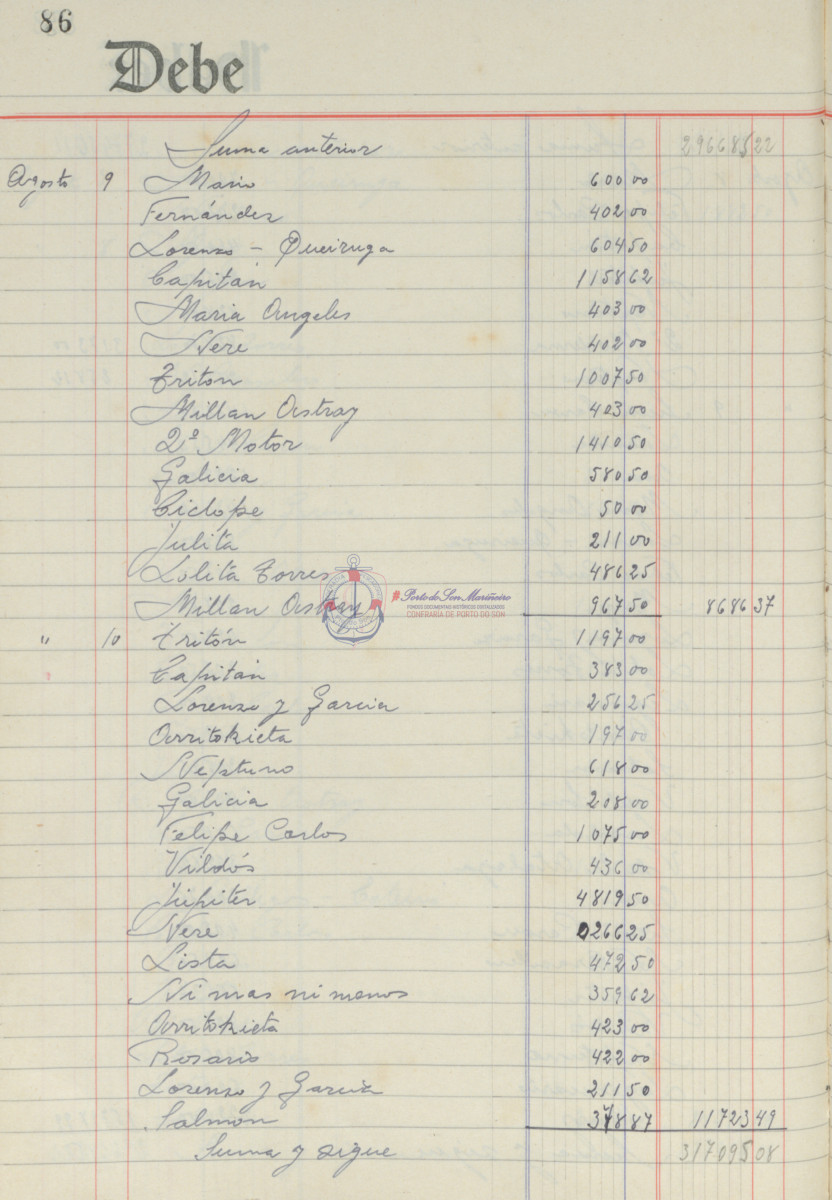 86
Debe
Suma anterior 296685 22
Agosto 9 Mario 600 00
Fernández 402 00
Lorenzo - Queiruga 604 50
Capitán 1158 62
Maria Angeles 403 00
Nere 402 00
Triton 1007 50
Millan Astray 403 00
2º Motor 1410 50
Galicia 580 50
Ciclope 50 00
Julita 211 00
Lolita Torres 486 25
Millan Astray 967 50 8686 37
#Porto do Son Mariñeiro
FONDOS DOCUMENTAIS HISTÓRICOS DIXITALIZADOS
CONFRARÍA DE PORTO DO SON
" 10 Tritón 1197 00
Capitán 383 00
Lorenzo y Garcia 256 25
Arritokieta 197 00
Neptuno 618 00
Galicia 208 00
Felipe Carlos 1075 00
Vildós 436 00
Jupiter 4819 50
Nere 266 25
Lista 472 50
Ni mas ni menos 359 62
Arritokieta 423 00
Rosario 422 00
Lorenzo y Garcia 211 50
Salmon 378 87 11723 49
Suma y sigue 317095 08